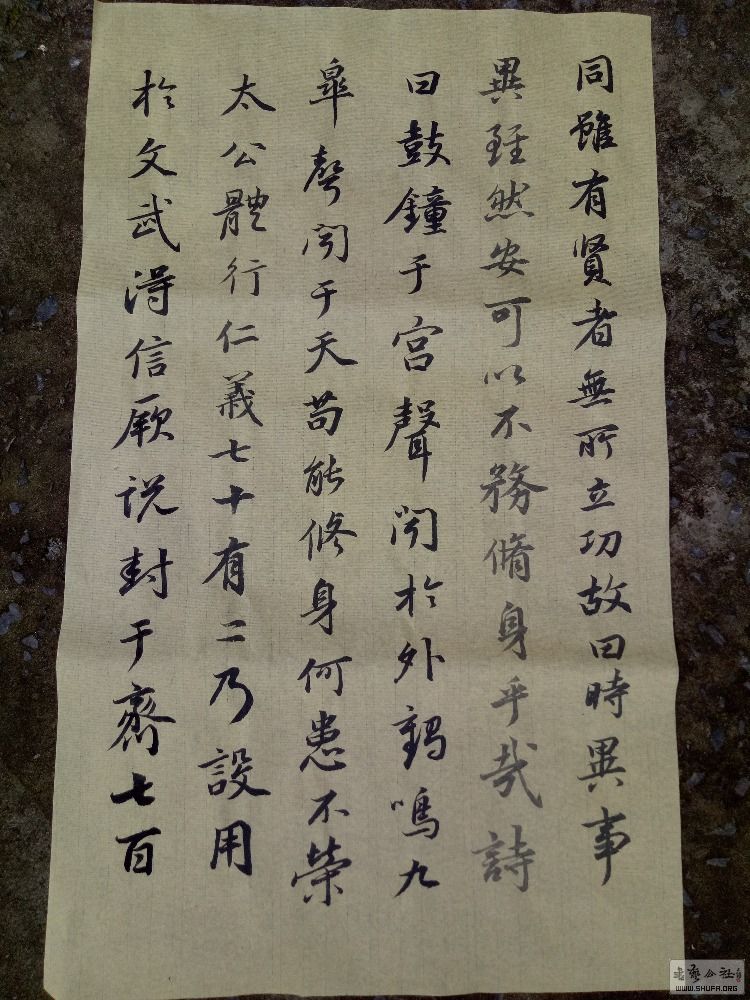 同雖有賢者無所立功故曰時異事
異雖然安可以不務脩身乎哉詩
曰鼓鐘于宮聲聞於外鶴鳴九
皐聲聞于天苟能修身何患不榮
太公體行仁義七十有二乃設用
於文武得信厥说封于齊七百
WWW.SHUFA.ORG